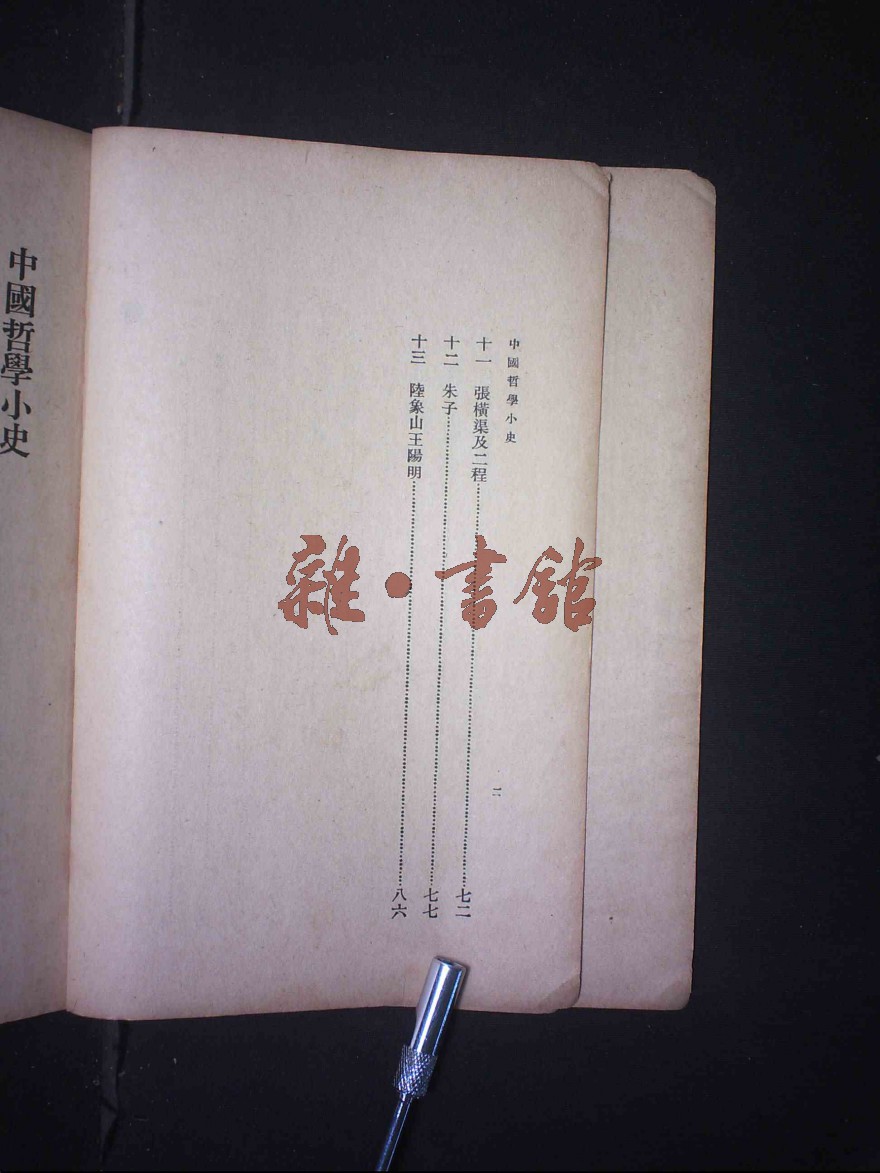 中國哲學小史
二
十一　張橫渠及二程……七二
十二　朱子……七七
十三　陸象山王陽明……八六
中國哲學小史
雜·書館